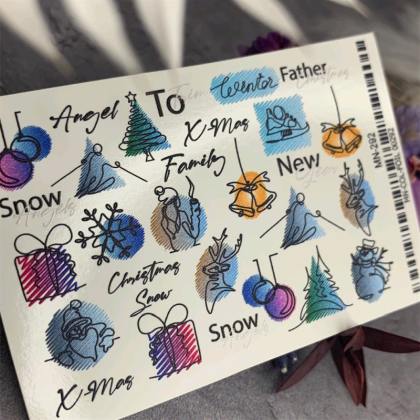 Angel
To
Winter
Father
Christmas
X-Mas
Family
New
Snow
Angels
Christmas
Snow
Snow
X-Mas
MN-292